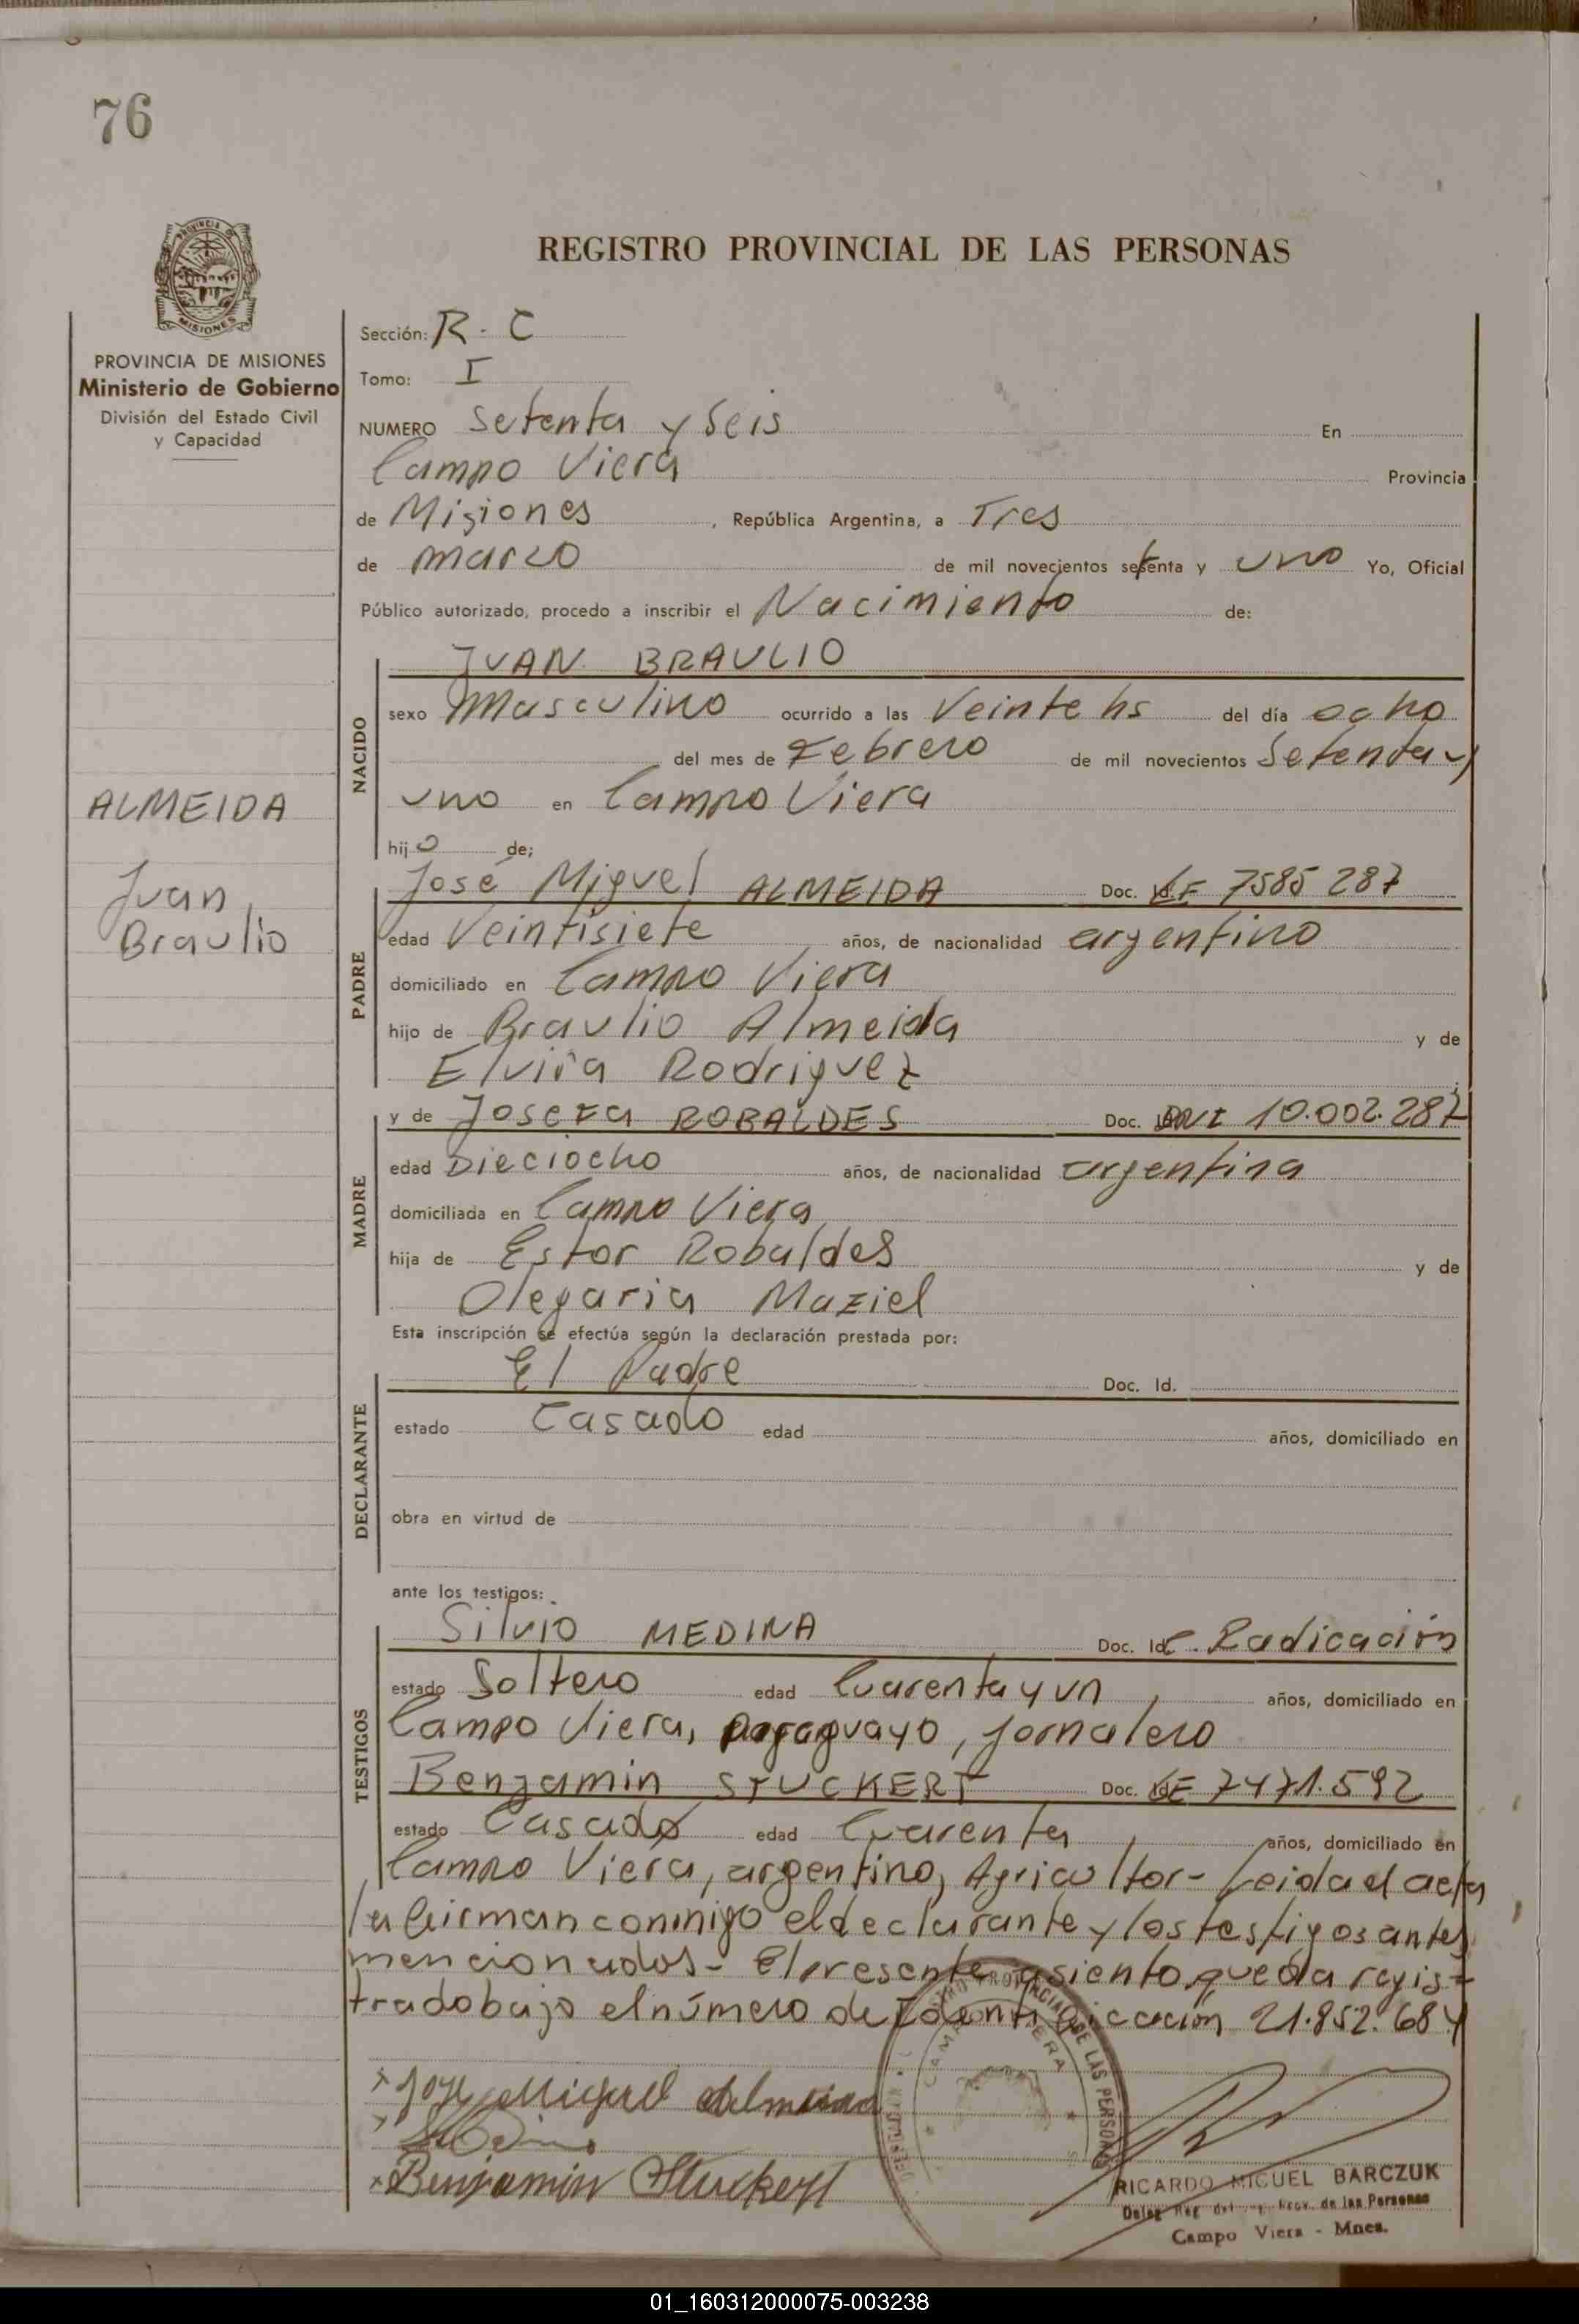 76
PROVINCIA DE
MISIONES
PROVINCIA DE MISIONES
Ministerio de Gobierno
División del Estado Civil
y Capacidad
ALMEIDA
Juan
Braulio
REGISTRO PROVINCIAL DE LAS PERSONAS
Sección: R. C
Tomo: I
NUMERO Setenta y Seis En
Campo Viera Provincia
de Misiones, República Argentina, a Tres
de marzo de mil novecientos setenta y uno Yo, Oficial
Público autorizado, procedo a inscribir el Nacimiento de:
NACIDO
JUAN BRAULIO
sexo Masculino ocurrido a las Veinte hs del día ocho
del mes de Febrero de mil novecientos Setenta y
uno en Campo Viera
hijo de;
PADRE
José Miguel ALMEIDA Doc. LE 7585 287
edad Veintisiete años, de nacionalidad argentino
domiciliado en Campo Viera
hijo de Braulio Almeida y de
Elvira Rodriguez
MADRE
y de Josefa ROBALDES Doc. DNI 10.002.287
edad Dieciocho años, de nacionalidad argentina
domiciliada en Campo Viera
hija de Estor Robaldes y de
Olegaria Maziel
Esta inscripción se efectúa según la declaración prestada por:
DECLARANTE
El Padre Doc. Id.
estado Casado edad años, domiciliado en
obra en virtud de
ante los testigos:
TESTIGOS
Silvio MEDINA Doc. Id. C. Radicación
estado Soltero edad Cuarenta y un, años, domiciliado en
Campo Viera, paraguayo, jornalero
Benjamin STUCKERT Doc. LE 7471.592
estado Casado edad Cuarenta, años, domiciliado en
Campo Viera, argentino, Agricultor- Leida el acta
la firman conmigo el declarante y los testigos antes
mencionados- El presente asiento queda regis-
trado bajo el número de Identificación 21.852.684
x José Miguel Almeida
x Benjamin Stuckert
CAMPO VIERA
RICARDO MIGUEL BARCZUK
Deleg. Reg. de las Personas
Campo Viera - Mnes.
01_160312000075-003238